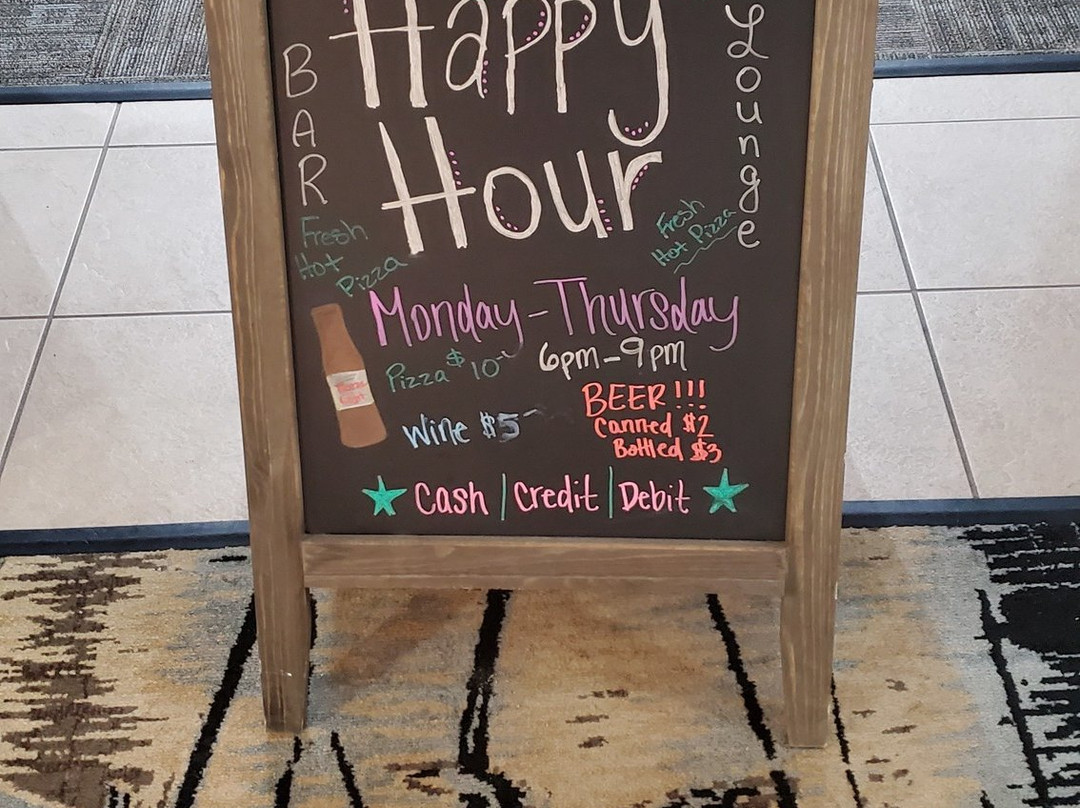 Happy
Hour
BAR
Lounge
Fresh
Hot
Pizza
Fresh
Hot Pizza
Monday-Thursday
6pm-9pm
Pizza $10
Wine $5
BEER!!!
Canned $2
Bottled $3
Cash | Credit | Debit